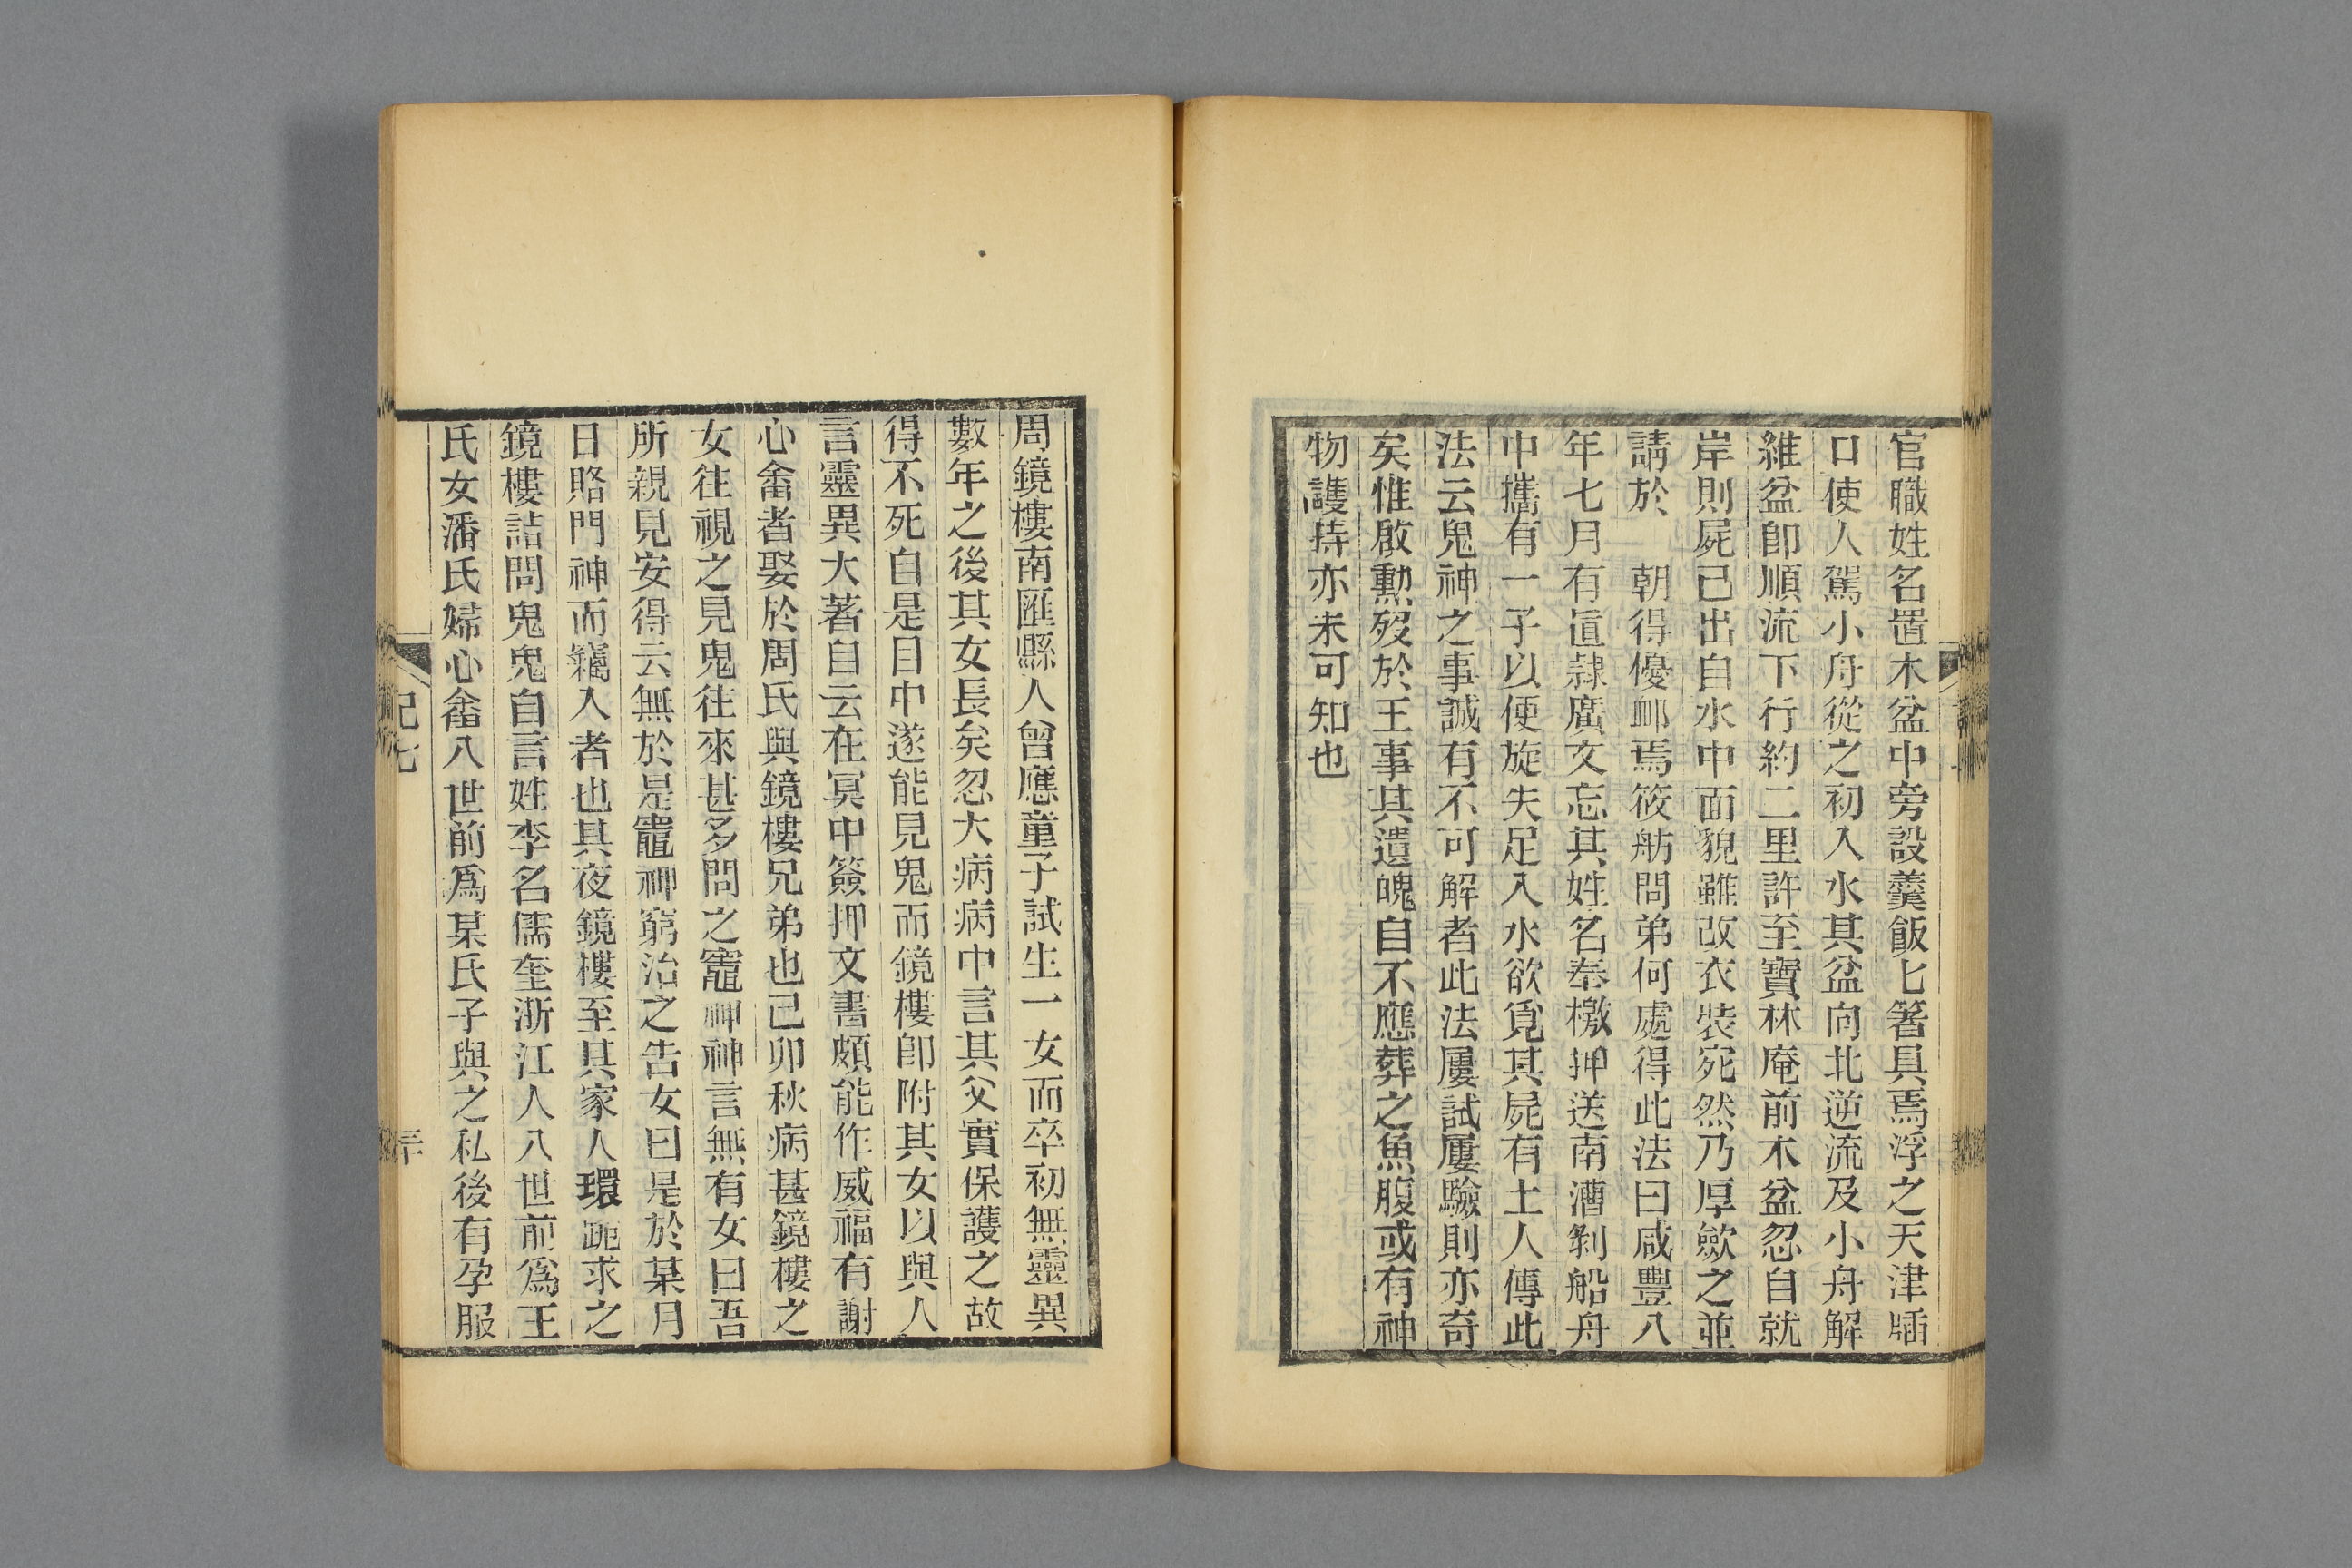 官職姓名置木盆中旁設羹飯匕箸具焉浮之天津牐
口使人駕小舟從之初入水其盆向北逆流及小舟解
維盆卽順流下行約二里許至寶林庵前木盆忽自就
岸則屍已出自水中面貌雖改衣裝宛然乃厚歛之並
請於　朝得優卹焉筱舫問弟何處得此法曰咸豐八
年七月有直隸廣文忘其姓名奉檄押送南漕剝船舟
中攜有一子以便旋失足入水欲覓其屍有土人傳此
法云鬼神之事誠有不可解者此法屢試屢驗則亦奇
矣惟啟勳歿於王事其遺魄自不應葬之魚腹或有神
物護持亦未可知也
周鏡樓南匯縣人曾應童子試生一女而卒初無靈異
數年之後其女長矣忽大病病中言其父實保護之故
得不死自是目中遂能見鬼而鏡樓卽附其女以與人
言靈異大著自云在冥中簽押文書頗能作威福有謝
心畬者娶於周氏與鏡樓兄弟也己卯秋病甚鏡樓之
女往視之見鬼往來甚多問之竈神神言無有女曰吾
所親見安得云無於是竈神窮治之告女曰是於某月
日賂門神而竊入者也其夜鏡樓至其家人環跪求之
鏡樓詰問鬼鬼自言姓李名儒奎浙江人八世前爲王
氏女潘氏婦心畬八世前爲某氏子與之私後有孕服
記七